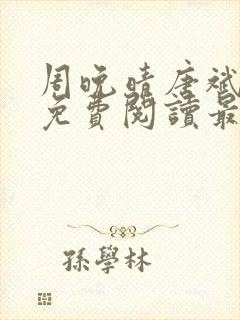 周晚晴唐斌
免費閱讀最
孫學林